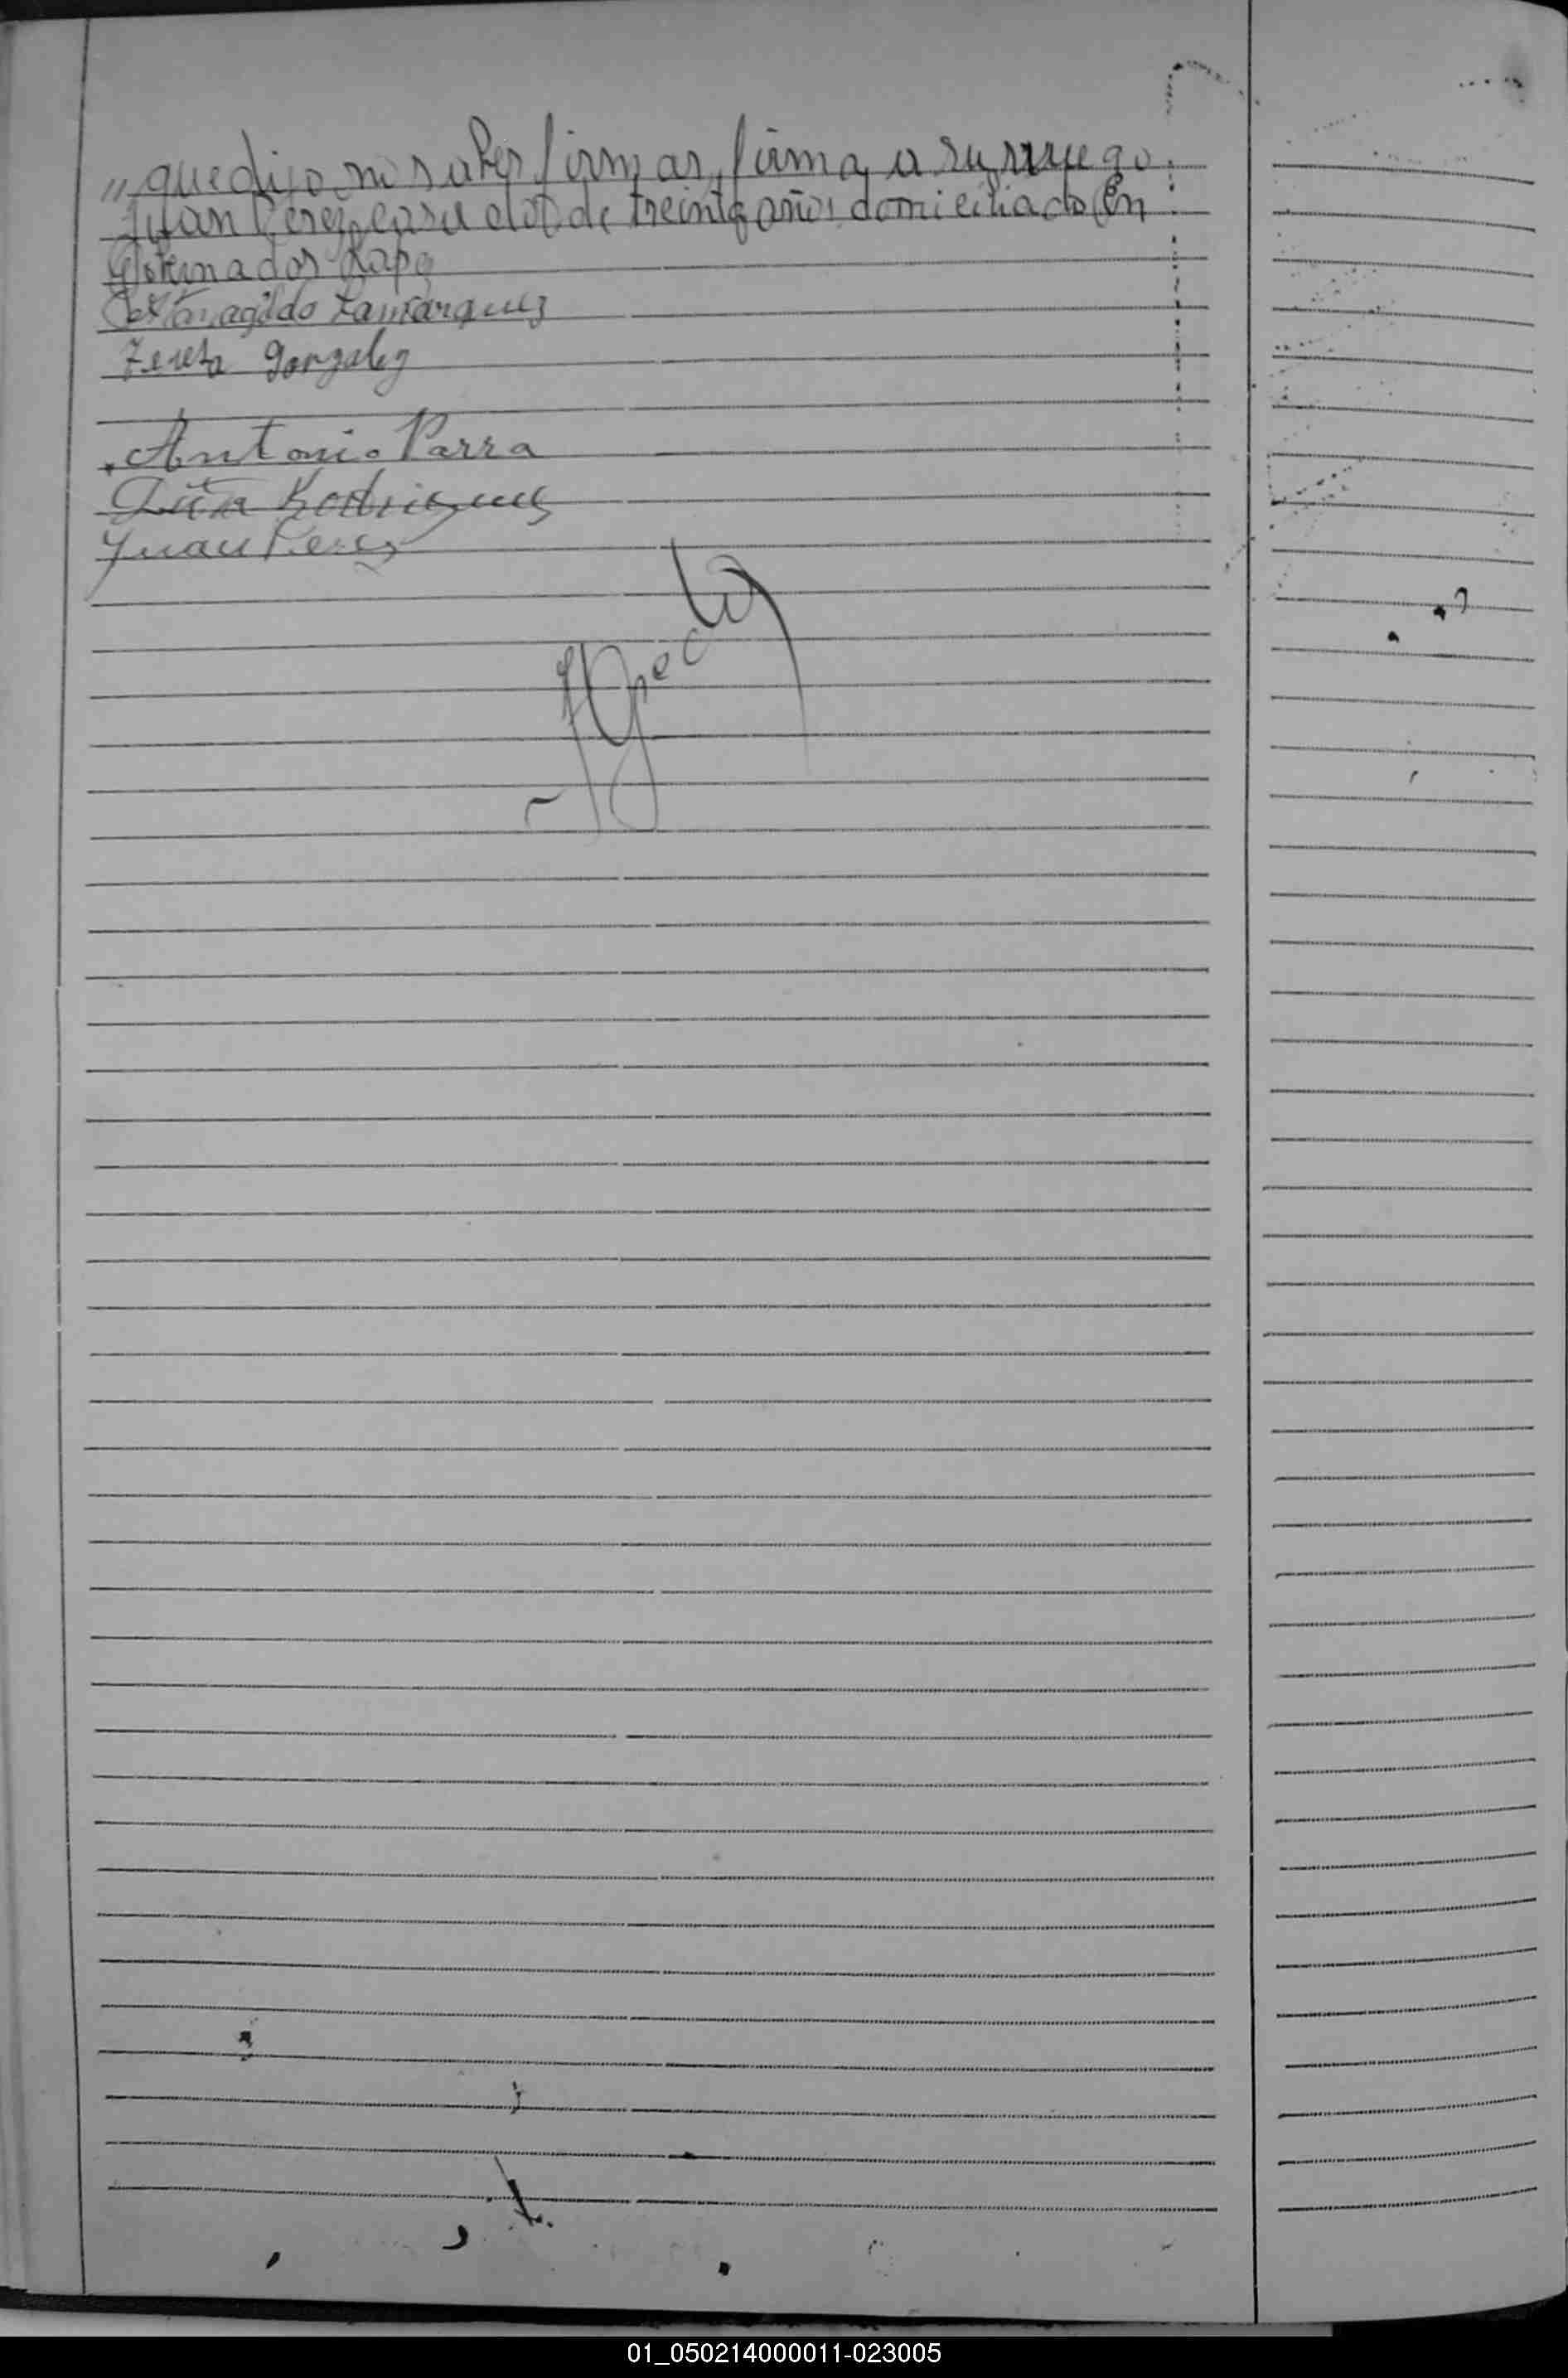 " que dijo no saber firmar, firma a su ruego
Juan Perez, casado, de treinta años domiciliado en
Gobernador
Zamarquez
Teresa Gonzalez
Antonio Parra
Rodriguez
Juan Perez
01_050214000011-023005